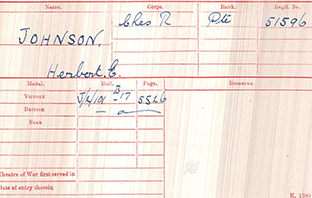 Name. Corps. Rank. Regtl. No.
JOHNSON, Ches R Pte 51596
Herbert. E.
Medal. Roll. Page. Remarks.
Victory J/2/101 B17 5526
British
Star
Theatre of War first served in
Date of entry therein